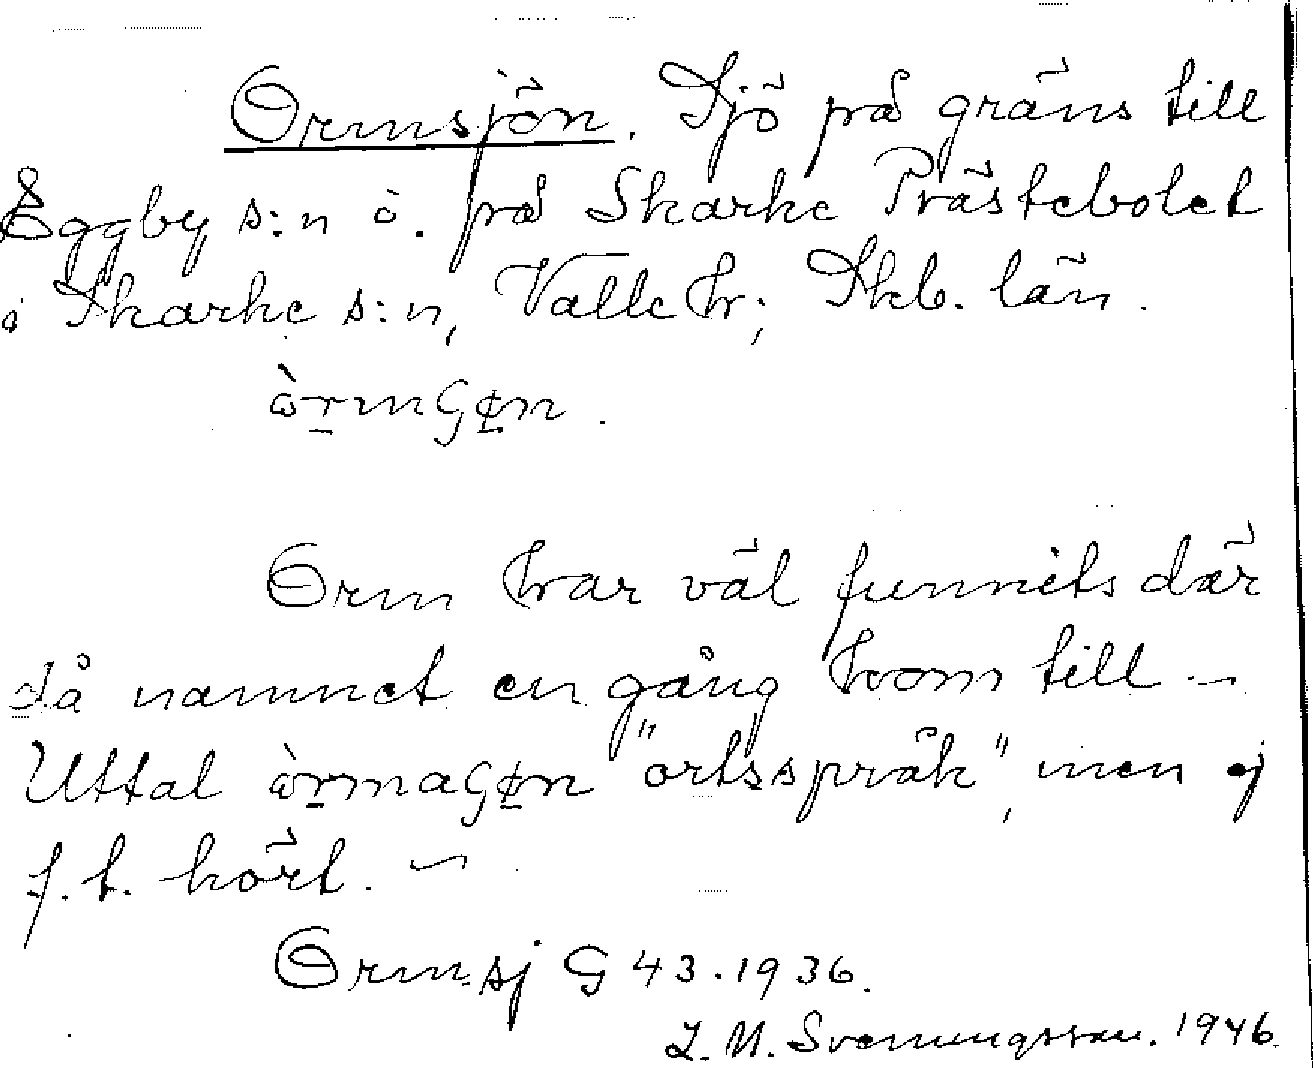 Ormsjön. Sjö på gräns till
Eggby s:n ö. på Skarke Prästebolet
i Skarke s:n, Valle hr; Skb. län.
òrmɢɵn.
Orm har väl funnits där
då namnet en gång kom till. –
Uttal òrmaɢɵn "ortsspråk", men ej
f. t. hört. –
Ormsj G 43. 1936.
Svenungsson. 1946.